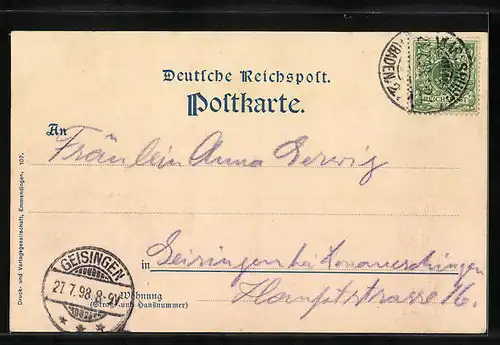 Deutsche Reichspost.
Postkarte.
An
Fräulein Anna Gerwig
in Geisingen bei Donaueschingen
Wohnung
(Straße und Hausnummer)
Hauptstrasse 16.
GEISINGEN
27.7.98.8-9V
(BADEN)
Druck- und Verlagsgesellschaft, Emmendingen. 107.